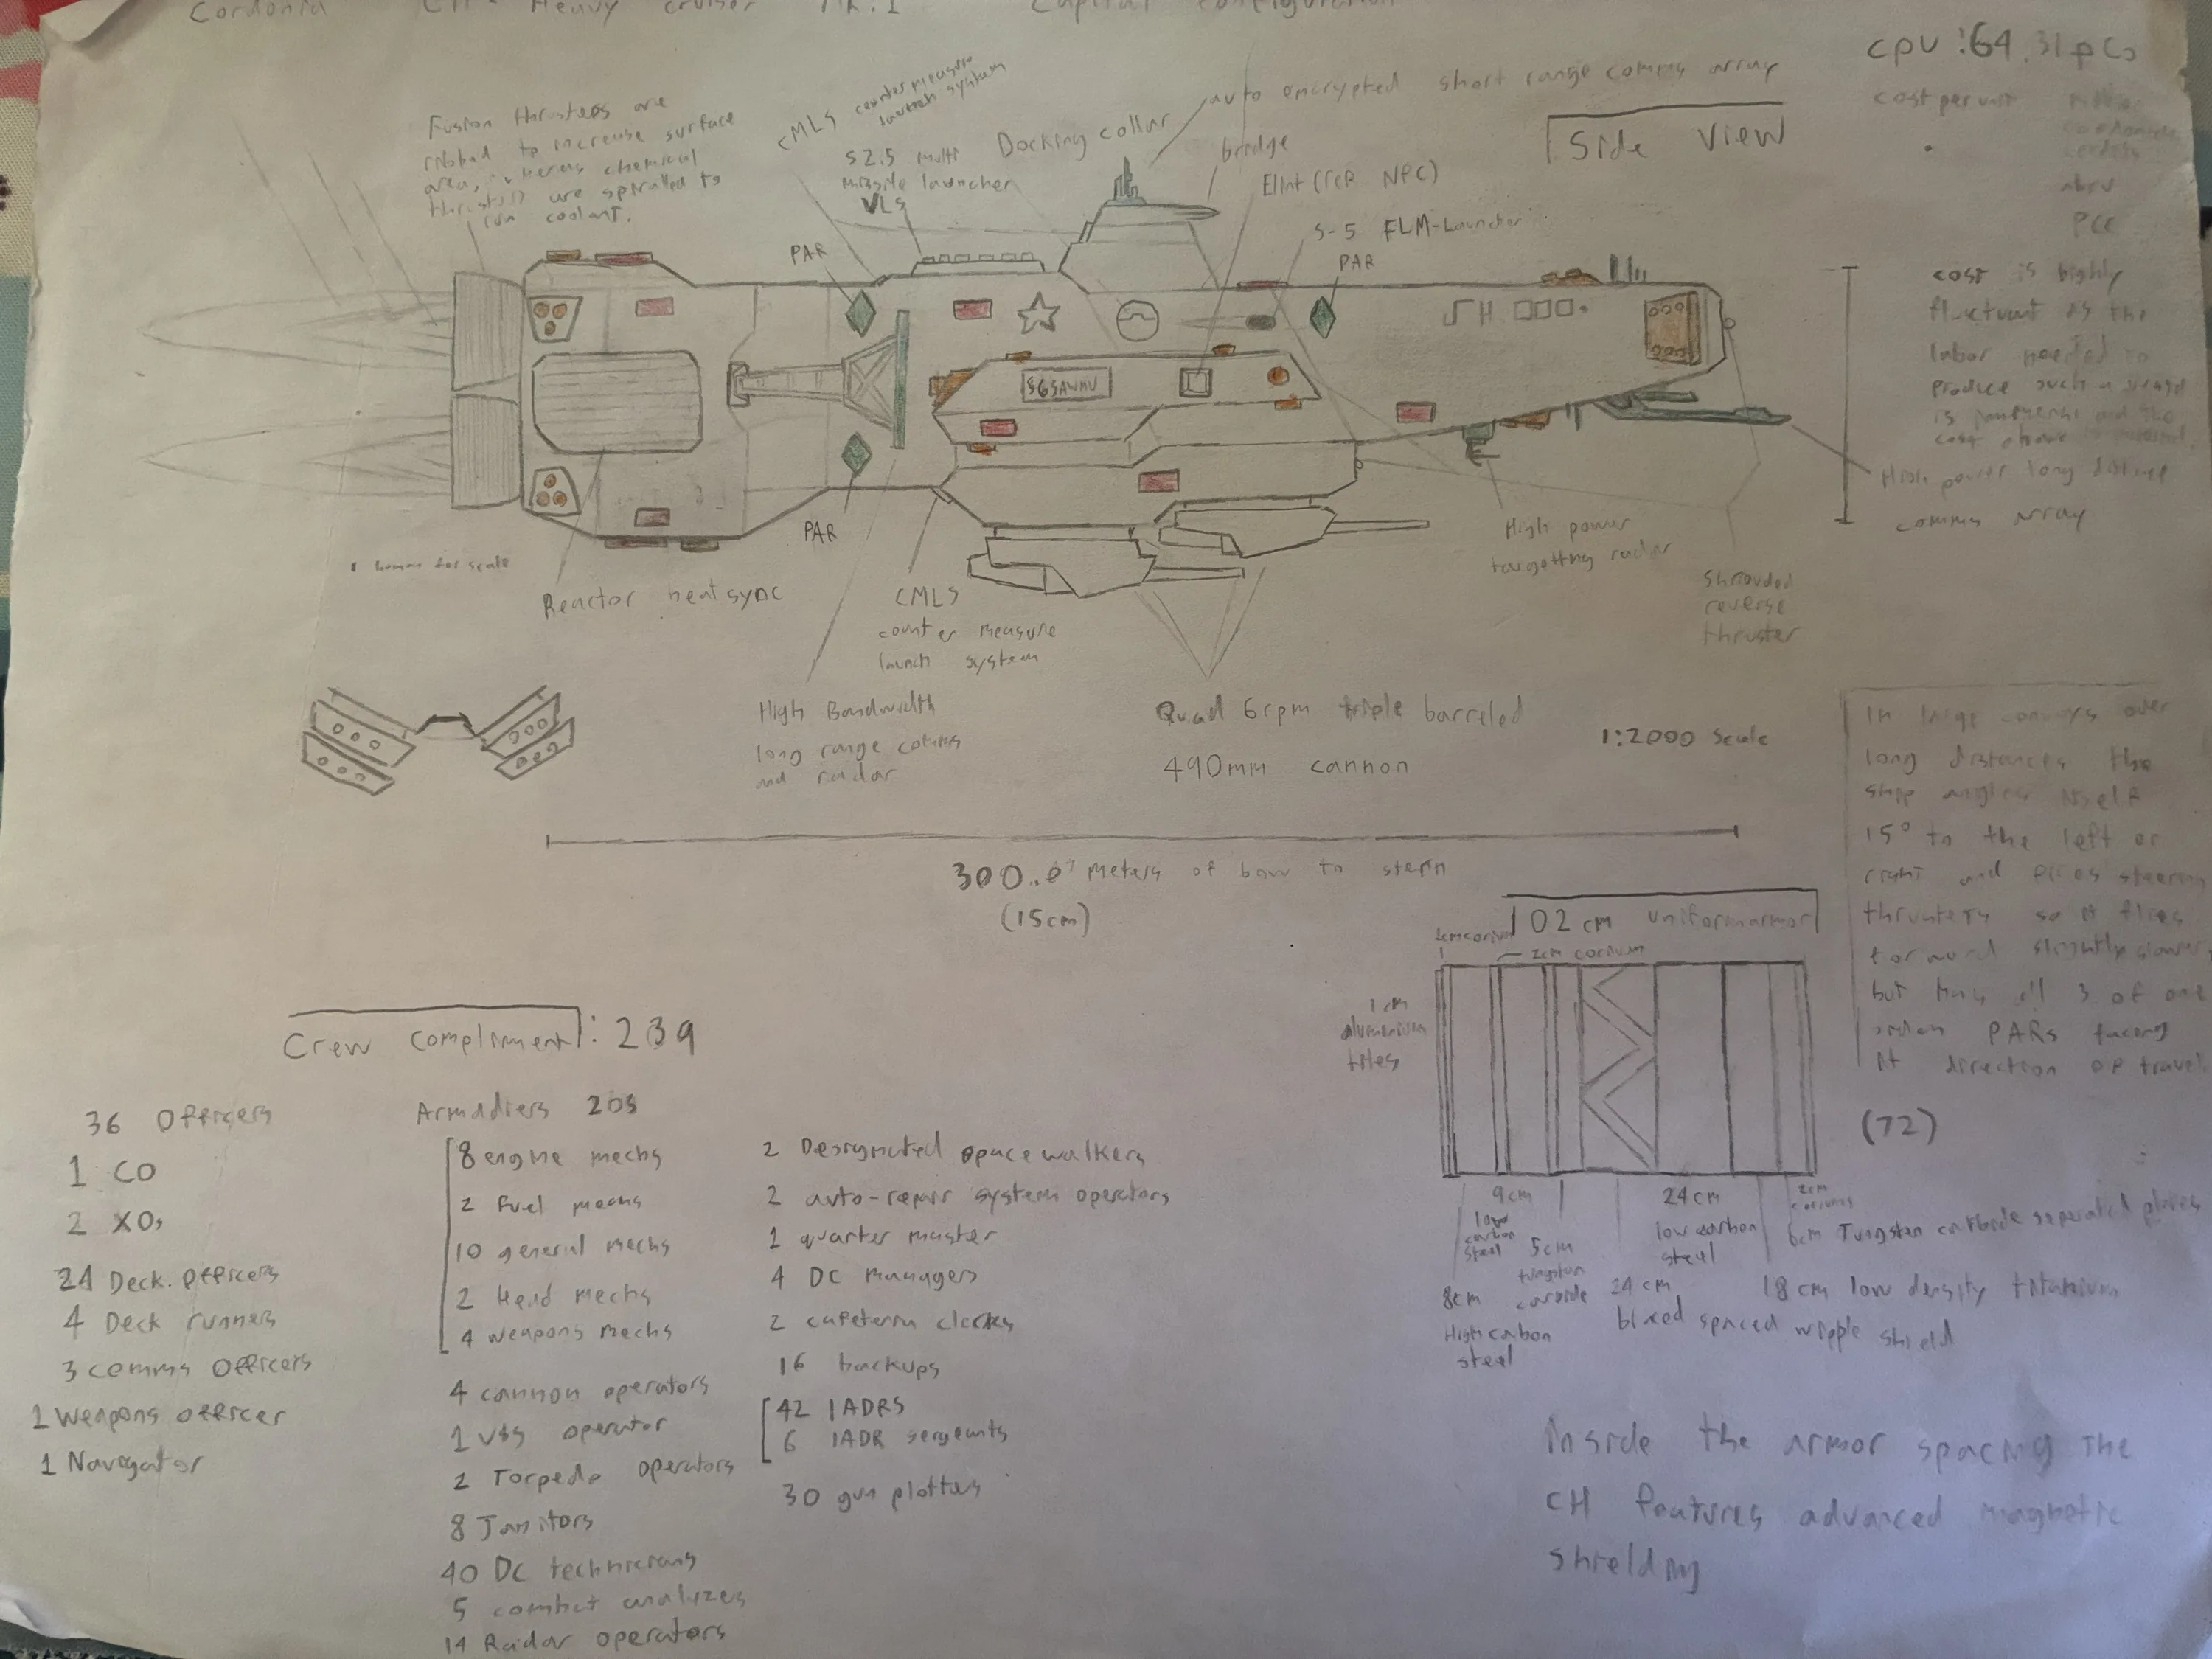 Cordonia CH- Heavy cruiser Mk.I Capital configuration
cpu :64.31 pCs
cost per unit
abrv
PCC
cost is highly
fluctuant as the
labor needed to
produce such a
is and the
cost
Side View
Fusion thrusters are
ribbed to increase surface
area, wheras chemical
thrusters are spiralled to
run coolant.
CMLS counter measure
launch system
S2.5 multi
missile launcher
VLS
Docking collar
auto encrypted short range comms array
bridge
Elint (rep NPC)
S-5 FLM-Launcher
PAR
PAR
PAR
SH
865AWMU
High power long distance
comms array
1 human for scale
Reactor heatsync
CMLS
counter measure
launch system
High power
targetting radar
Shrouded
reverse
thruster
High Bandwidth
long range comms
and radar
Quad 6rpm triple barreled
490mm cannon
1:2000 Scale
300.0 meters of bow to stern
(15cm)
In large convoys over
long distances the
ship angles itself
15° to the left or
right and fires steering
thrusters so it flies
forward slightly slower,
but has all 3 of one
PARs facing
it direction of travel
(72)
102 cm uniform armor
2cm corium
2cm corium
1cm
aluminum
tiles
9cm
low
carbon
steel
5cm
tungsten
carbide
24cm
low carbon
steel
2cm
corium
6cm Tungsten carbide separated plates
8cm
High carbon
steel
24 cm
spaced wipple shield
18 cm low density titanium
Inside the armor spacing the
CH features advanced magnetic
shielding
Crew Compliment: 239
36 Officers
1 CO
2 XOs
24 Deck officers
4 Deck runners
3 comms officers
1 Weapons officer
1 Navagator
Armadiers 203
8 engine mechs
2 Fuel mechs
10 general mechs
2 Head mechs
4 weapons mechs
4 cannon operators
1 VLS operator
2 Torpedo operators
8 Janitors
40 DC technicians
5 combat analyzes
14 Radar operators
2 Designated spacewalkers
2 auto-repair system operators
1 quarter master
4 DC managers
2 cafeteria clerks
16 backups
42 IADRS
6 IADR sergeants
30 gun plotters